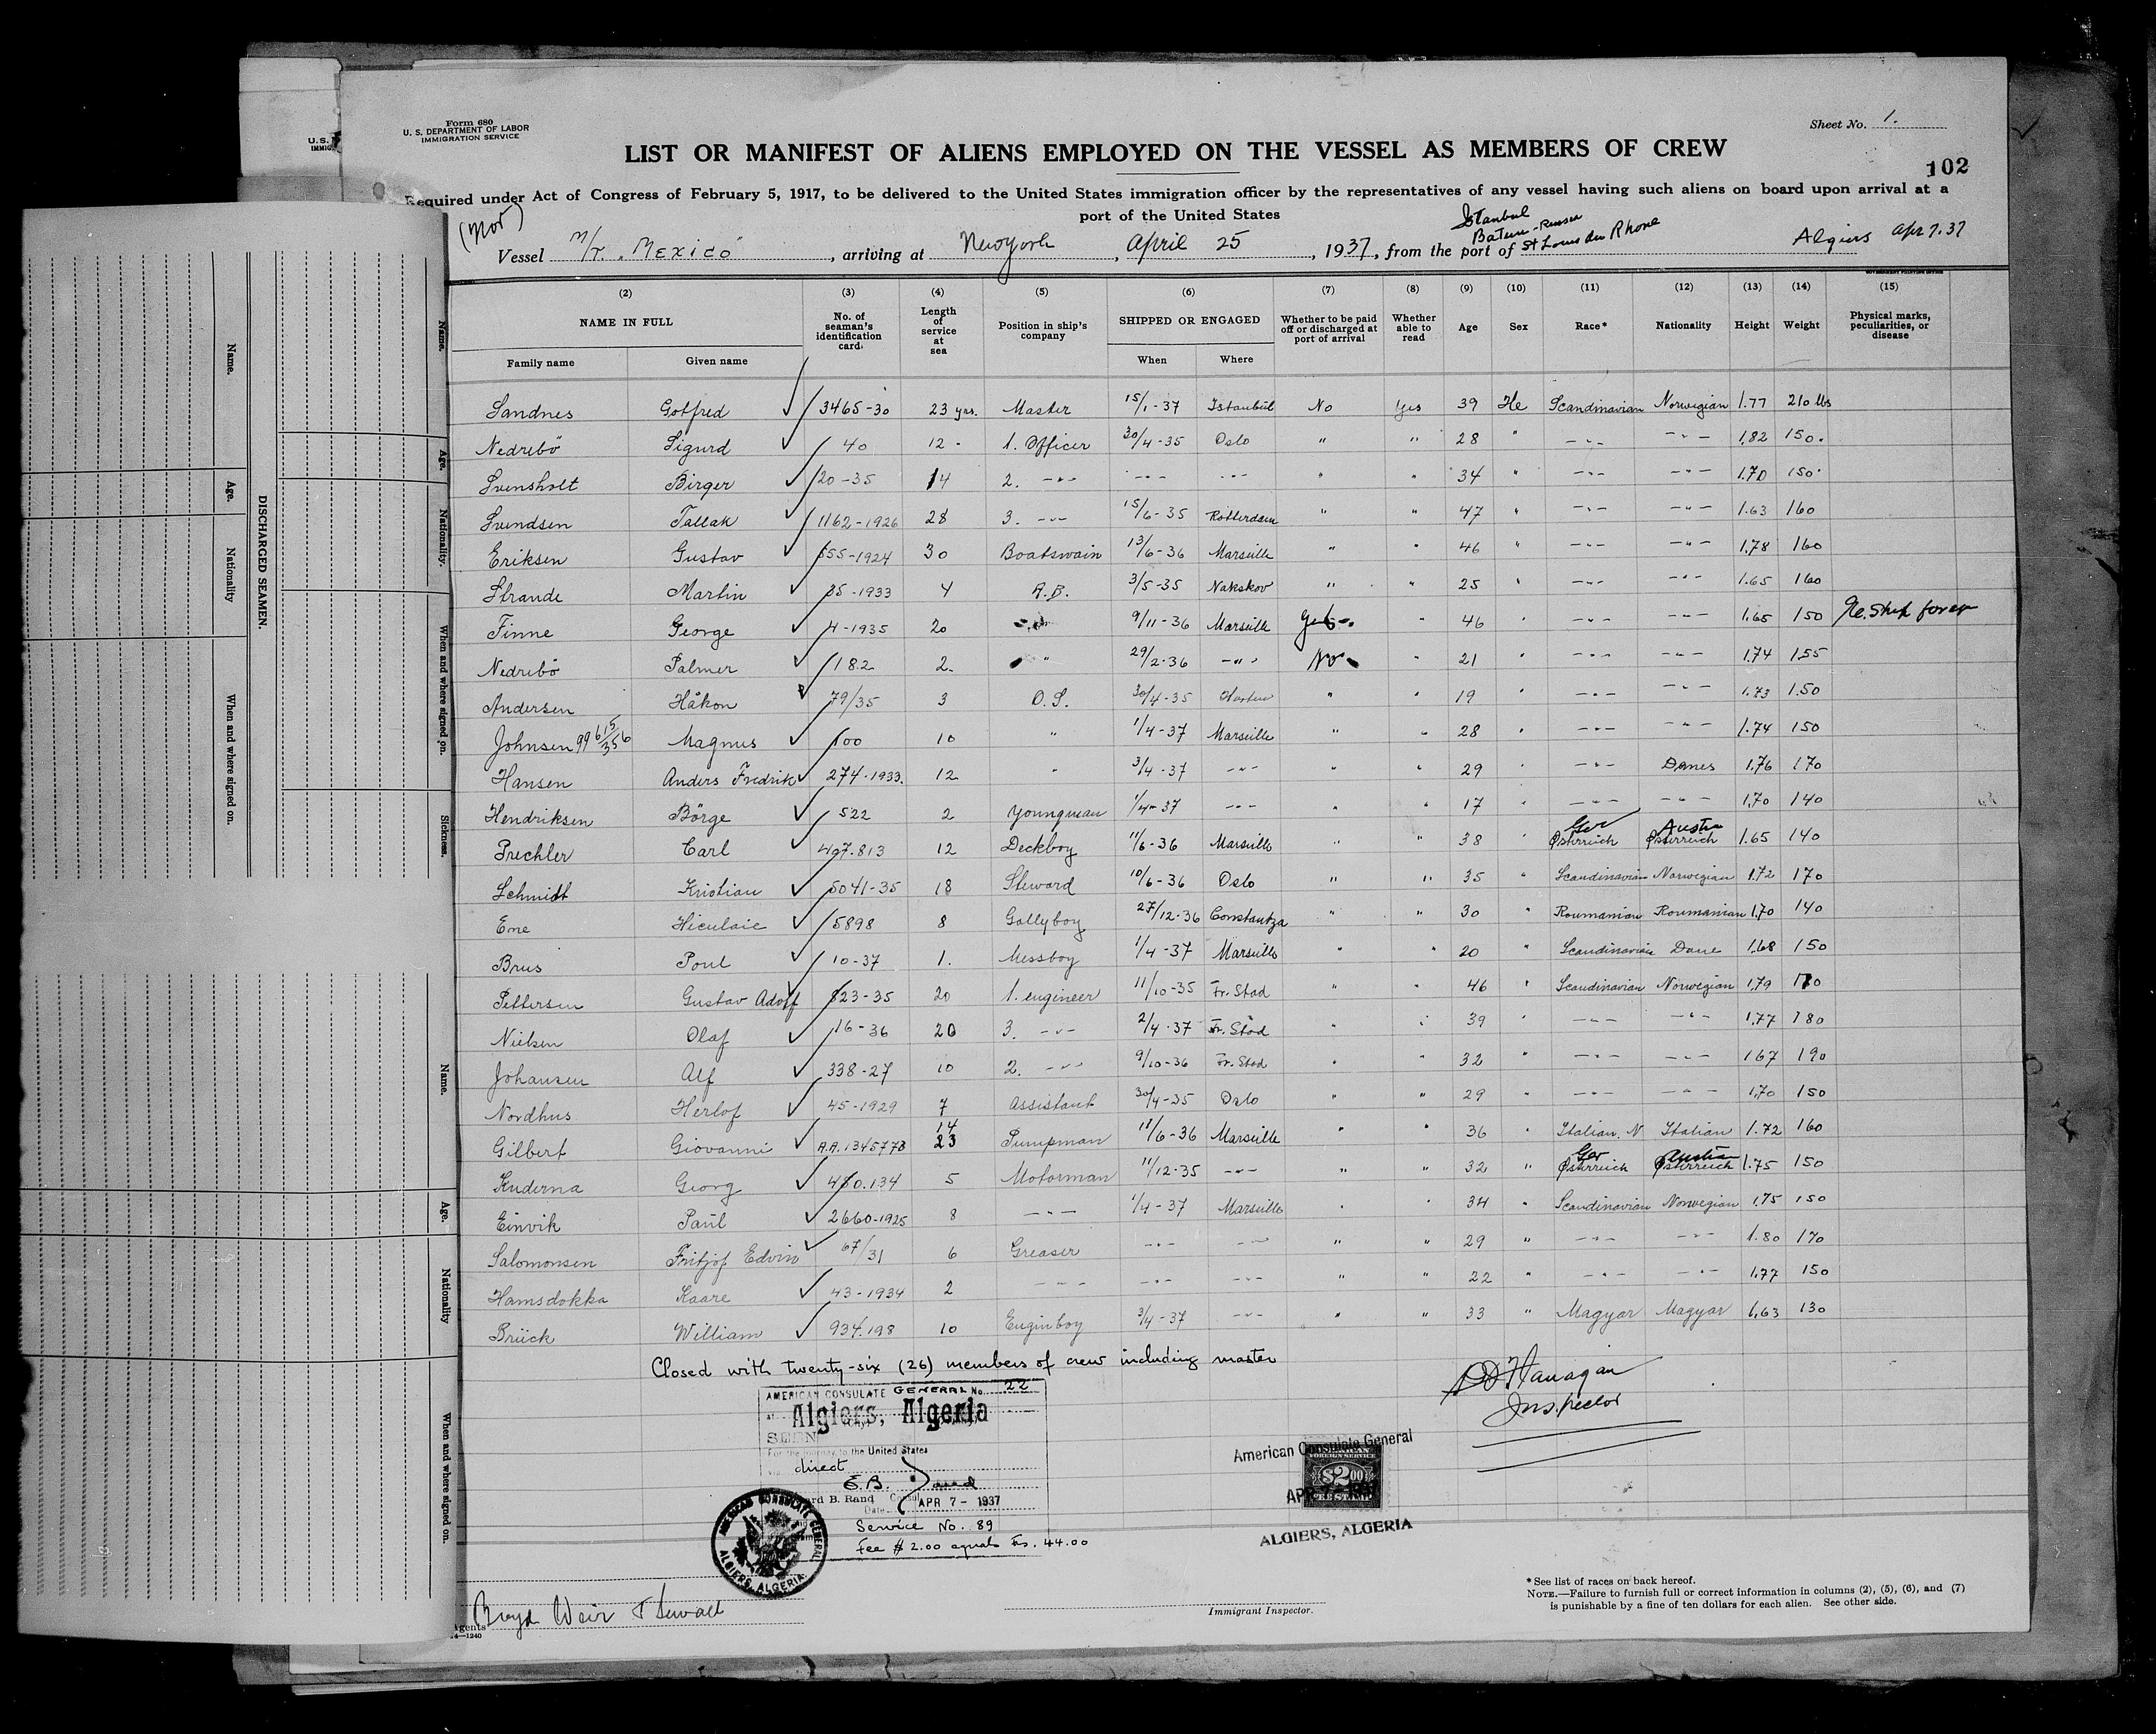 Form 680
U. S. DEPARTMENT OF LABOR
IMMIGRATION SERVICE
U. S.
Sheet No. 1.
LIST OR MANIFEST OF ALIENS EMPLOYED ON THE VESSEL AS MEMBERS OF CREW
102
Required under Act of Congress of February 5, 1917, to be delivered to the United States immigration officer by the representatives of any vessel having such aliens on board upon arrival at a
port of the United States
(Nor)
Istanbul
Batum - Russia
Vessel M/T. "Mexico", arriving at New york, April 25, 1937, from the port of St Louis du Rhone Algiers Apr 7. 37
(2) (3) (4) (5) (6) (7) (8) (9) (10) (11) (12) (13) (14) (15)
NAME IN FULL No. of seaman's identification card. Length of service at sea Position in ship's company SHIPPED OR ENGAGED Whether to be paid off or discharged at port of arrival Whether able to read Age Sex Race* Nationality Height Weight Physical marks, peculiarities, or disease
Family name Given name When Where
Sandnes Gotfred 3465-30 23 yrs. Master 15/1-37 Istanbul No Yes 39 He Scandinavian Norwegian 1.77 210 lbs
Nedrebö Sigurd 40 12 - 1. Officer 30/4-35 Oslo " " 28 " -"- -"- 1,82 150.
Svensholt Birger 20-35 14 2. -"- -"- -"- " " 34 " -"- -"- 1.70 150
Svendsen Tallak 1162-1926 28 3. -"- 15/6-35 Rotterdam " " 47 " -"- -"- 1.63 160
Eriksen Gustav 555-1924 30 Boatswain 13/6-36 Marseille " " 46 " -"- -"- 1,78 160
Strande Martin 35-1933 4 A.B. 3/5-35 Nakskov " " 25 " -"- -"- 1.65 160
Finne George 4-1935 20 -"- 9/11-36 Marseille Yes " 46 " -"- -"- 1,65 150 Re. Ship
Nedrebö Palmer 182 2 " 29/2-36 -"- No " 21 " -"- -"- 1.74 155
Andersen Håkon 79/35 3 O.S. 30/4-35 " " 19 " -"- -"- 1.73 150
Johnsen 99 615/356 Magnus 100 10 " 1/4-37 Marseille " " 28 " -"- -"- 1.74 150
Hansen Anders Fredrik 274-1933. 12 " 3/4-37 -"- " " 29 " -"- Danes 1,76 170
Hendriksen Börge 522 2 Youngman 1/4-37 -"- " " 17 " -"- -"- 1,70 140
Ger Austria
Prechler Carl 407.813 12 Deckboy 11/6-36 Marseille " " 38 " Østerreich Østerreich 1.65 140
Schmidt Kristian 5041-35 18 Steward 10/6-36 Oslo " " 35 " Scandinavian Norwegian 1.72 170
Ene Niculaie 5898 8 Gallyboy 27/12-36 Constantza " " 30 " Roumanian Roumanian 1,70 140
Brus Poul 10-37 1. Messboy 1/4-37 Marseille " " 20 " Scandinavian Dane 1,68 150
Pettersen Gustav Adolf 823-35 20 1. engineer 11/10-35 Fr. Stad " " 46 " Scandinavian Norwegian 1,79 170
Nielsen Olaf 16-36 20 3. -"- 2/4-37 Fr. Stad " " 39 " -"- -"- 1,77 180
Johansen Alf 338-27 10 2. -"- 9/10-36 Fr. Stad " " 32 " -"- -"- 167 190
Nordhus Herlof 45-1929 7 Assistant 30/4-35 Oslo " " 29 " -"- -"- 1,70 150
14
Gilbert Giovanni A.A.1345773 23 Pumpman 11/6-36 Marseille " " 36 " Italian. N Italian 1.72 160
Ger Austria
Kuderna Georg 480.134 5 Motorman 11/12-35 -"- " " 32 " Østerreich Østerreich 1.75 150
Einvik Paul 2660-1925 8 -"- 1/4-37 Marseille " " 34 " Scandinavian Norwegian 1,75 150
Salomonsen Fritjof Edvin 67/31 6 Greaser -"- -"- " " 29 " -"- -"- 1.80 170
Hamsdokka Kaare 43-1934 2 -"- -"- -"- " " 22 " -"- -"- 1,77 150
Brück William 934.198 10 Enginboy 3/4-37 -"- " " 33 " Magyar Magyar 1,63 130
Closed with twenty-six (26) members of crew including master
Flanagan
Inspector
AMERICAN CONSULATE GENERAL No. 22
at Algiers, Algeria
SEEN
For the journey to the United States
via direct
E.B. Rand
ard B. Rand Consul
Date APR 7 - 1937
Service No. 89
Fee $ 2.00 equals Frs. 44.00
AMERICAN CONSULATE GENERAL
ALGIERS, ALGERIA
American Consulate General
FOREIGN SERVICE
$2.00
FEE STAMP
APR 7 - 1937
ALGIERS, ALGERIA
Boyd Weir & Sewall
Agents
14—1240
Immigrant Inspector.
* See list of races on back hereof.
NOTE.—Failure to furnish full or correct information in columns (2), (5), (6), and (7)
is punishable by a fine of ten dollars for each alien. See other side.
DISCHARGED SEAMEN.
Name.
Age.
Nationality
When and where signed on.
Name.
Age.
Nationality.
When and where signed on.
Sickness.
Name.
Age.
Nationality
When and where signed on.